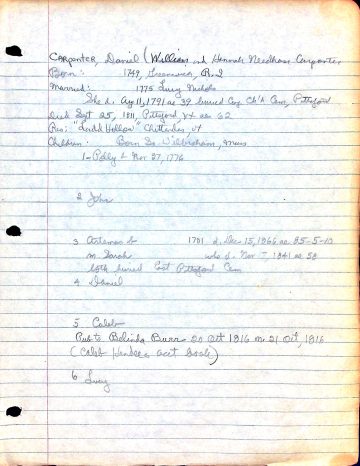 CARPENTER, Daniel (William and Hannah Needham Carpenter
Born: 1749, Greenwich, R.I
Married: 1775 Lucy Nichols
She d. Aug 11, 1791 ae 39 buried Cong Ch'h Cem, Pittsford
died Sept 25, 1811, Pittsford, Vt ae 62
Res: "Ladd Hollow" Chittenden, Vt
Children: Born So Wilbraham, Mass
1- Polly b Nov 27, 1776
2 John
3 Artemas b 1781 d. Dec 15, 1866 ae 85-5-10
m Sarah who d. Nov 7, 1841 ae 58
both buried East Pittsford Cem
4 Daniel
5 Caleb
Pub to Belinda Burr 20 Oct 1816 m. 21 Oct, 1816
(Caleb Hendee acct book)
6 Lucy